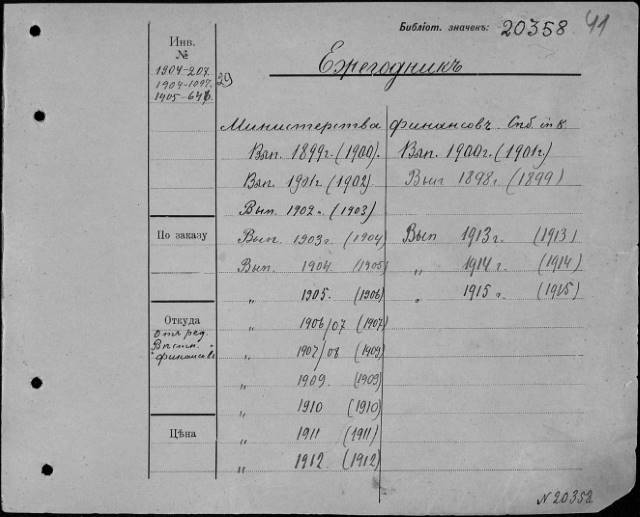 Библіот. значекъ: 20358 41
Инв.
№
1904-207.
1904-1097.
1905-646.
29
Ежегодникъ
Министерства финансовъ Спб in 8
Вып. 1899г. (1900). Вып. 1900г. (1901г)
Вып. 1901г (1902) Вып 1898г (1899)
Вып. 1902г. (1903)
По заказу
Вып. 1903г. (1904) Вып 1913г. (1913)
Вып. 1904. (1905) „ 1914г. (1914)
„ 1905. (1906) „ 1915г. (1915)
Откуда
Отъ ред.
Вѣстн.
финансовъ
„ 1906/07 (1907)
„ 1907/08 (1909)
„ 1909. (1909)
„ 1910 (1910)
Цѣна
„ 1911 (1911)
„ 1912. (1912)
N 20352